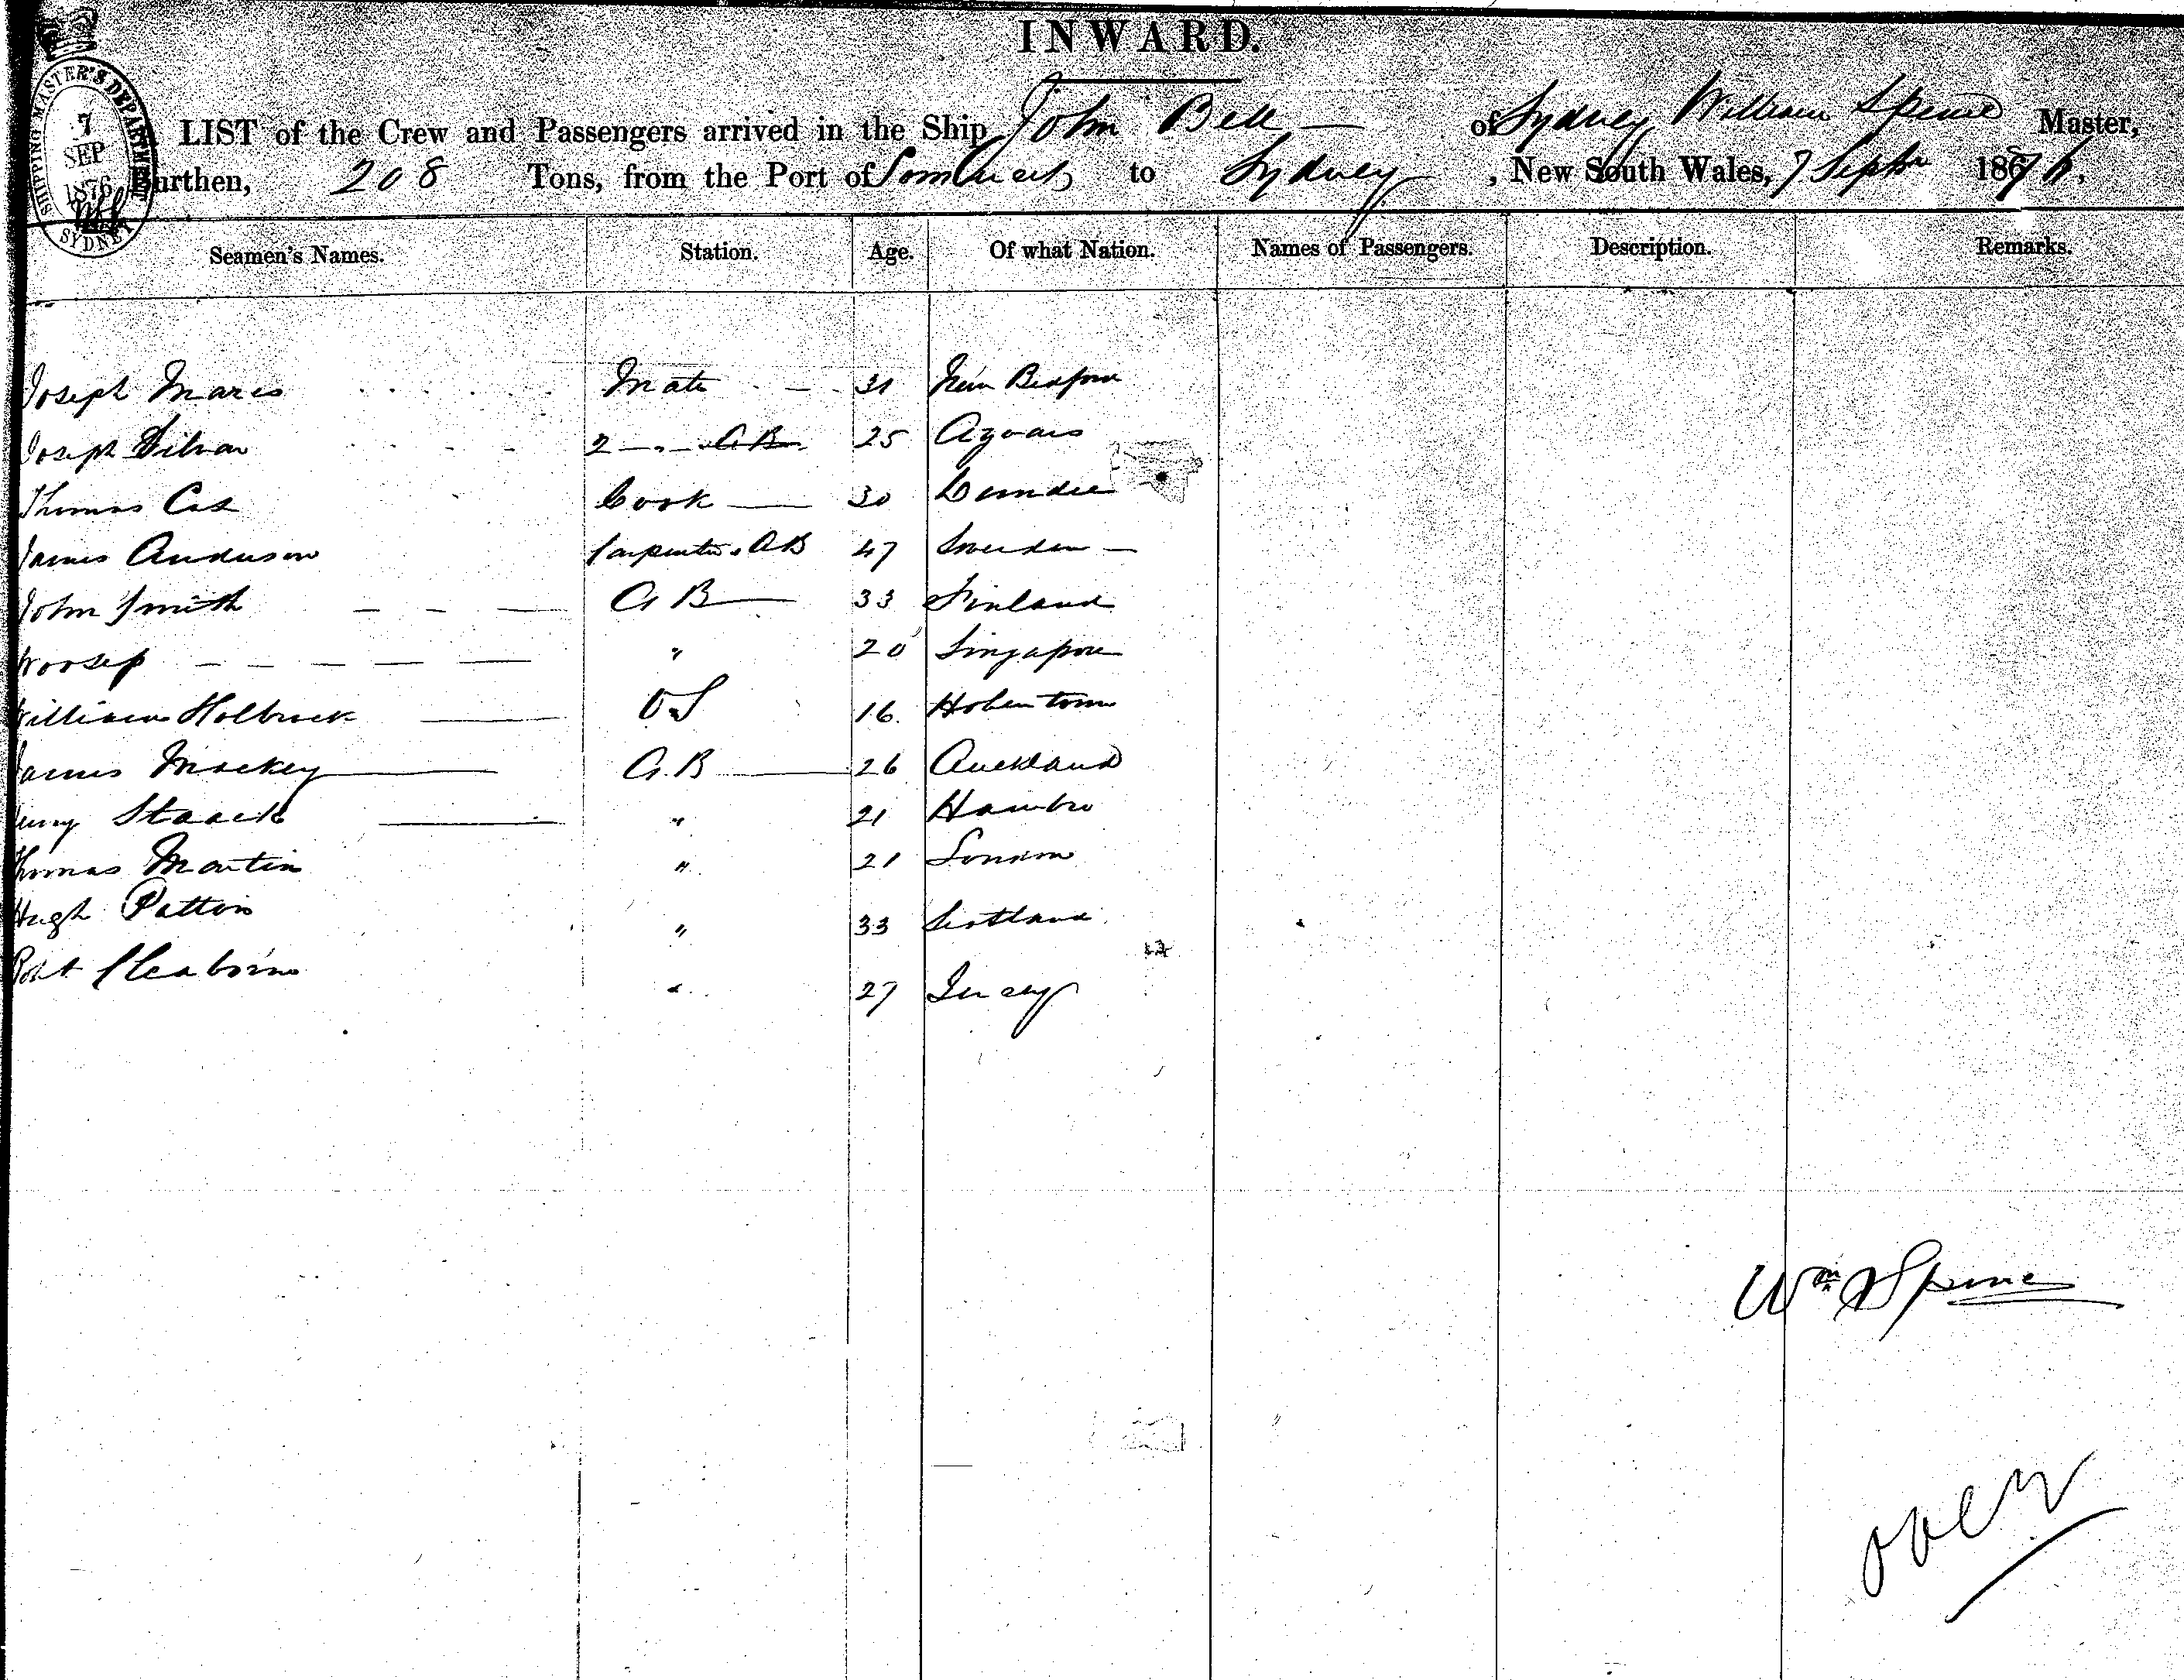 INWARD.
SHIPPING MASTER'S DEPARTMENT
7
SEP
1876
SYDNEY
LIST of the Crew and Passengers arrived in the Ship John Bell — of Sydney William Spence Master,
Burthen, 208 Tons, from the Port of to Sydney, New South Wales, 7 Septr 1876,
Seamen's Names. Station. Age. Of what Nation. Names of Passengers. Description. Remarks.
Joseph Mate 31 New Bedford
Joseph 2 — " — A B 25
Thomas Cook — 30 Dundee
James Anderson Carpenter & AB 47 Sweden —
John Smith A B — 33 Finland
" 20 Singapore
William Holbrook O.S 16. Hoben town
James Mackey A.B — 26 Auckland
Staack " 21 Hambro
Thomas Martin " 21 London
Hugh Patton " 33 Scotland
Robt " 27 Jersey
Wm Spence
over